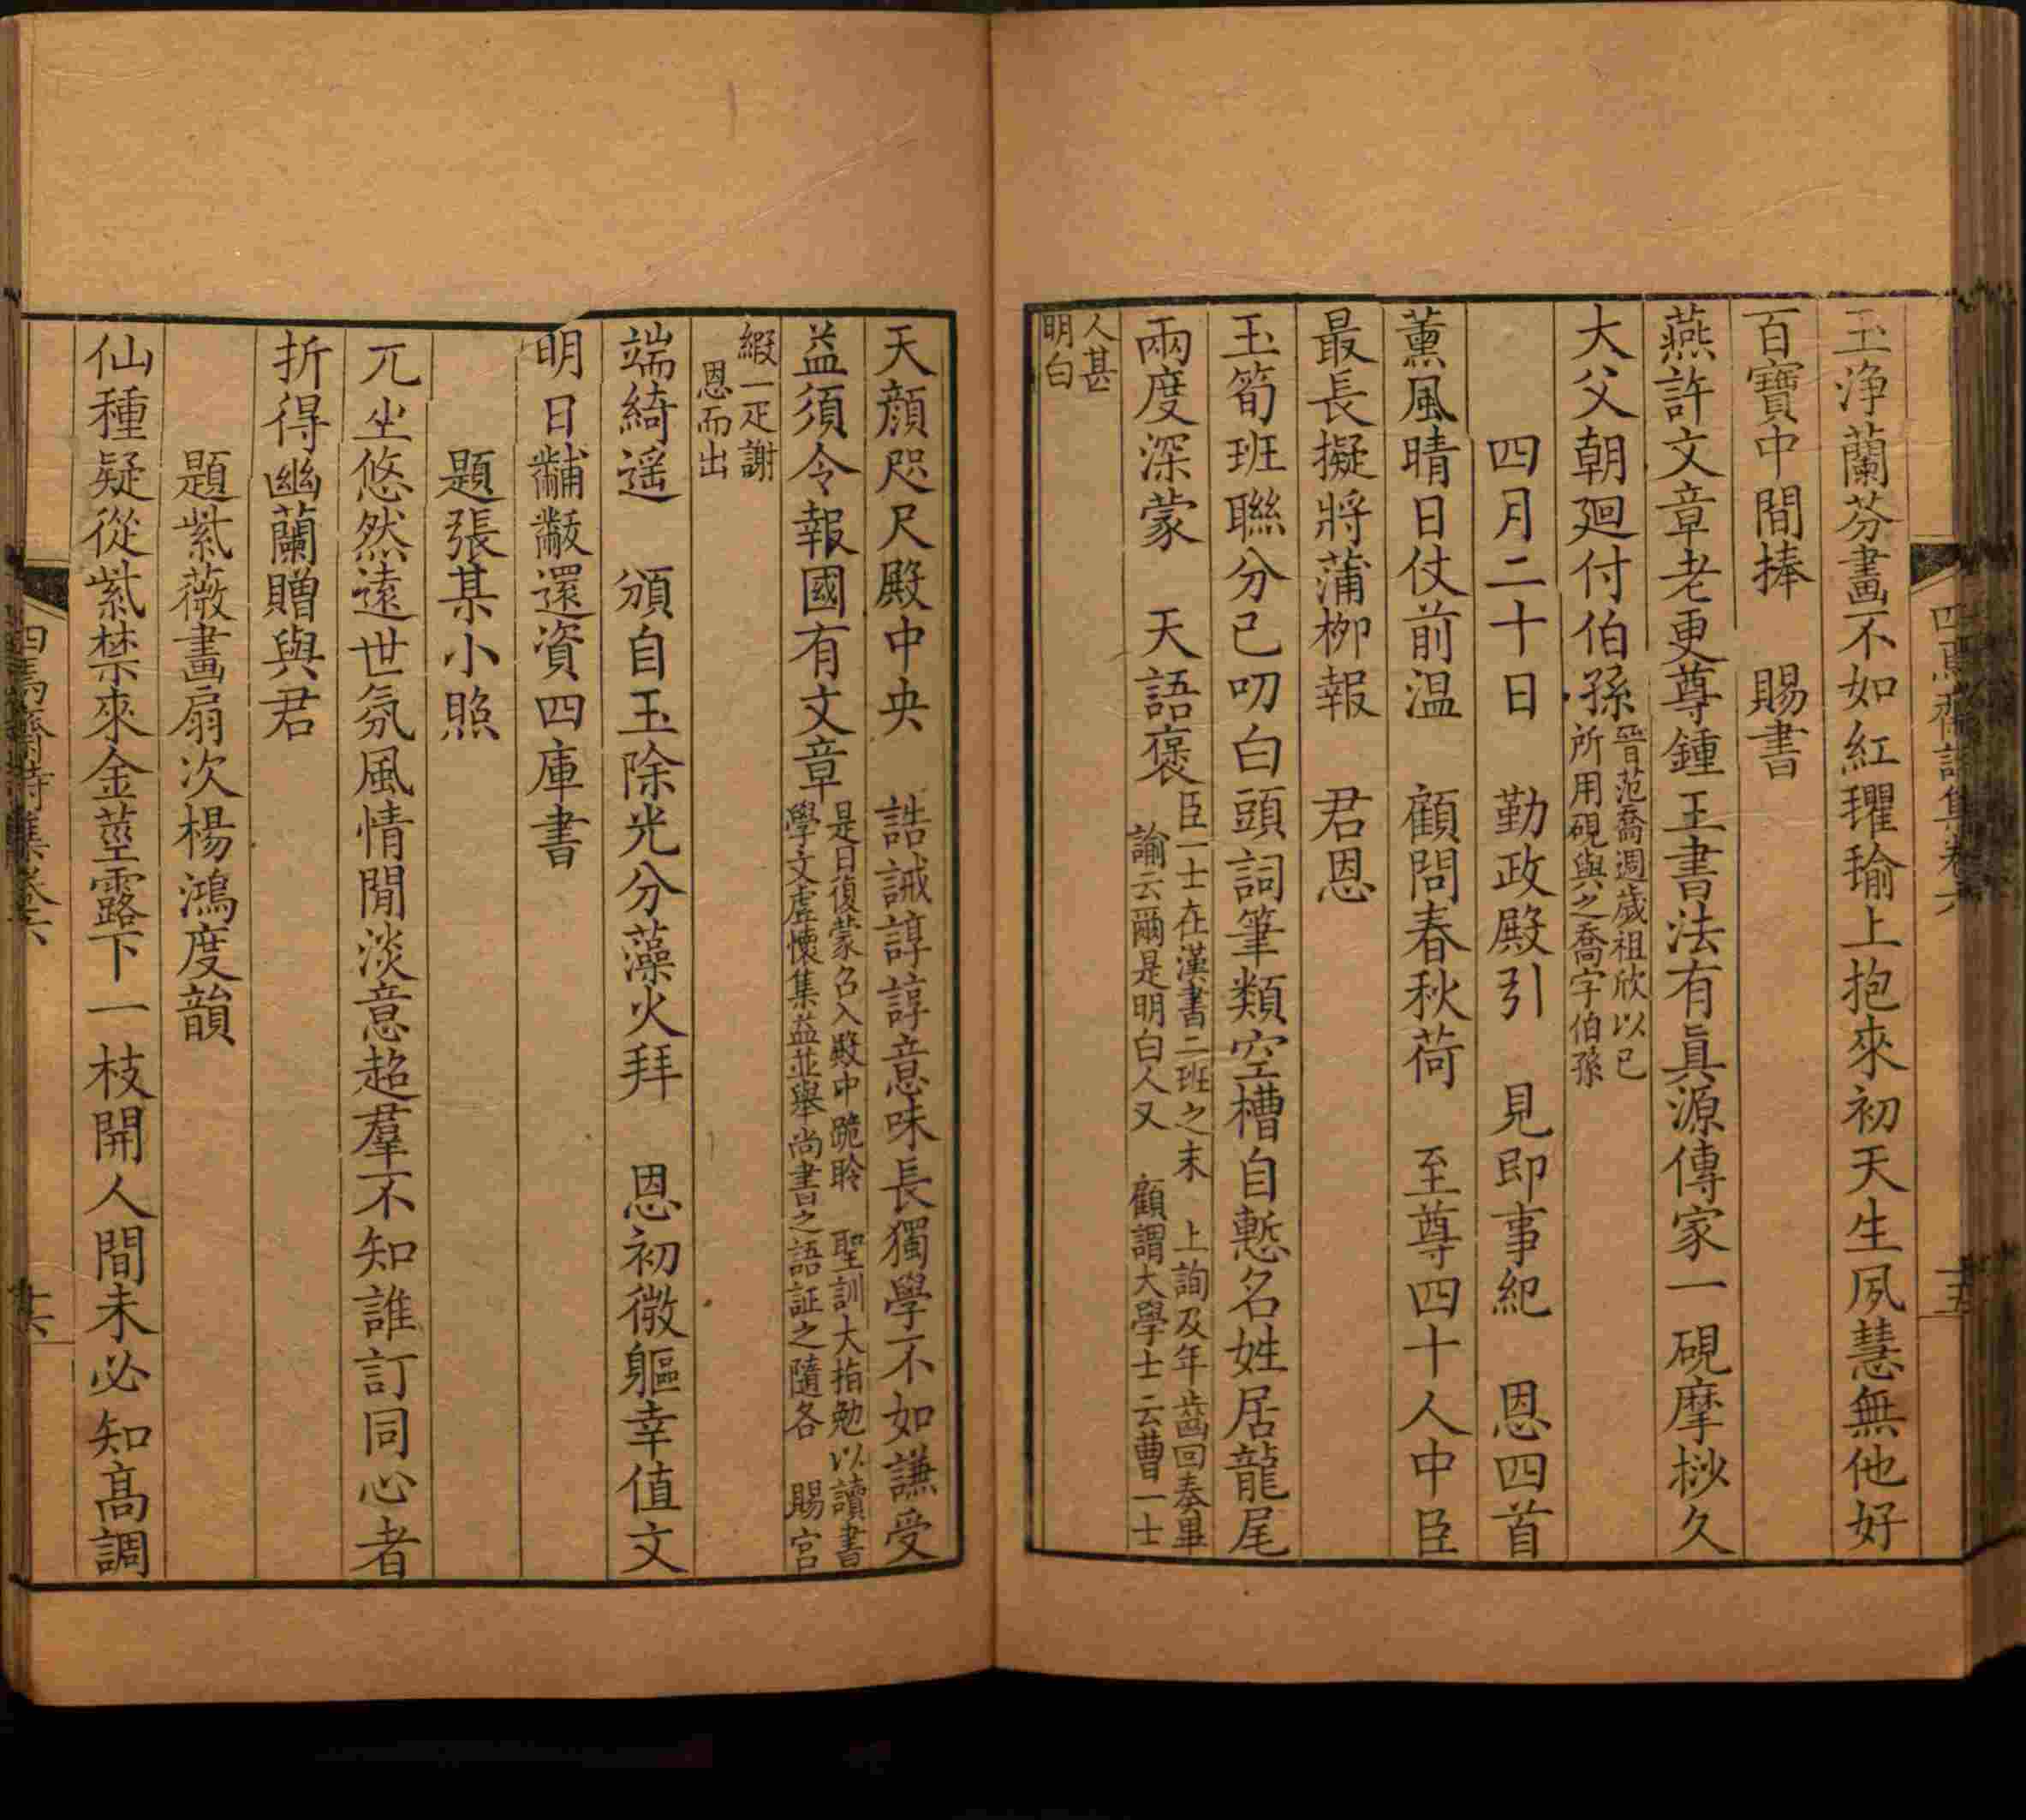 玉淨蘭芬畫不如紅瓘瑜上抱來初天生夙慧無他好
百寶中間捧　賜書
燕許文章老更尊鍾王書法有眞源傳家一硯摩挱久
大父朝廻付伯孫晉范喬週歲祖欣以已
所用硯與之喬字伯孫
四月二十日　勤政殿引　見即事紀　恩四首
薰風晴日仗前温　顧問春秋荷　至尊四十人中臣
最長擬將蒲柳報　君恩
玉筍班聯分已叨白頭詞筆類空槽自慙名姓居龍尾
兩度深蒙　天語褒臣一士在漢書二班之末　上詢及年齒回奏畢
諭云爾是明白人又　顧謂大學士云曹一士
人甚
明白
天顔咫尺殿中央　誥誡諄諄意味長獨學不如謙受
益須令報國有文章是日復蒙召入殿中跪聆　聖訓大指勉以讀書
學文虛懷集益並舉尚書之語証之隨各　賜宮
緞一疋謝
恩而出
端綺遥　頒自玉除光分藻火拜　恩初微軀幸值文
明日黼黻還資四庫書
題張某小照
兀坐悠然遠世氛風情閒淡意超羣不知誰訂同心者
折得幽蘭贈與君
題紫薇畫扇次楊鴻度韻
仙種疑從紫禁來金莖露下一枝開人間未必知高調
四焉齋詩集卷六
十六